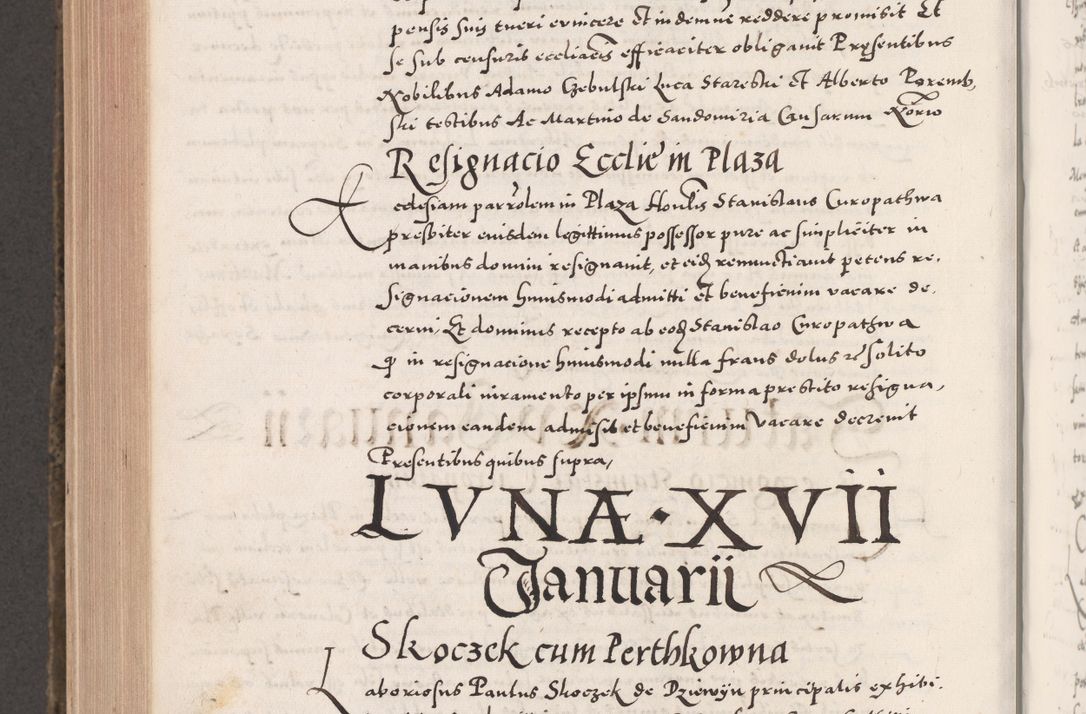 pensis suis tueri evincere Et indemne reddere promisit Et
se sub censuris eccliacis efficaciter obligavit Presentibus
Nobilibus Adamo Czebulski Luca Stareski Et Alberto Poremb,
ski testibus Ac Martino de Sandomiria Causarum Norio
Resignacio Ecclie in Plaza
Ecclesiam parrolem in Plaza Honlis Stanislaus Curopathwa
presbiter eiusdem legittimus possessor pure ac simpliciter in
manibus domini resignavit, et eidem renunctiavit petens re,
signacionem huiusmodi admitti Et beneficium vacare de,
cerni, Et dominus recepto ab eodem Stanislao Curopathwa
quod in resignacione huiusmodi nulla fraus dolus etc solito
corporali iuramento per ipsum in forma prestito resigna,
cionem eandem admisit et beneficium vacare decrevit
Presentibus quibus supra,
LVNÆ · XVII
Januarii
Skoczek cum Perthkowna
Laboriosus Paulus Skoczek de Dziewyn principalis exhibi,